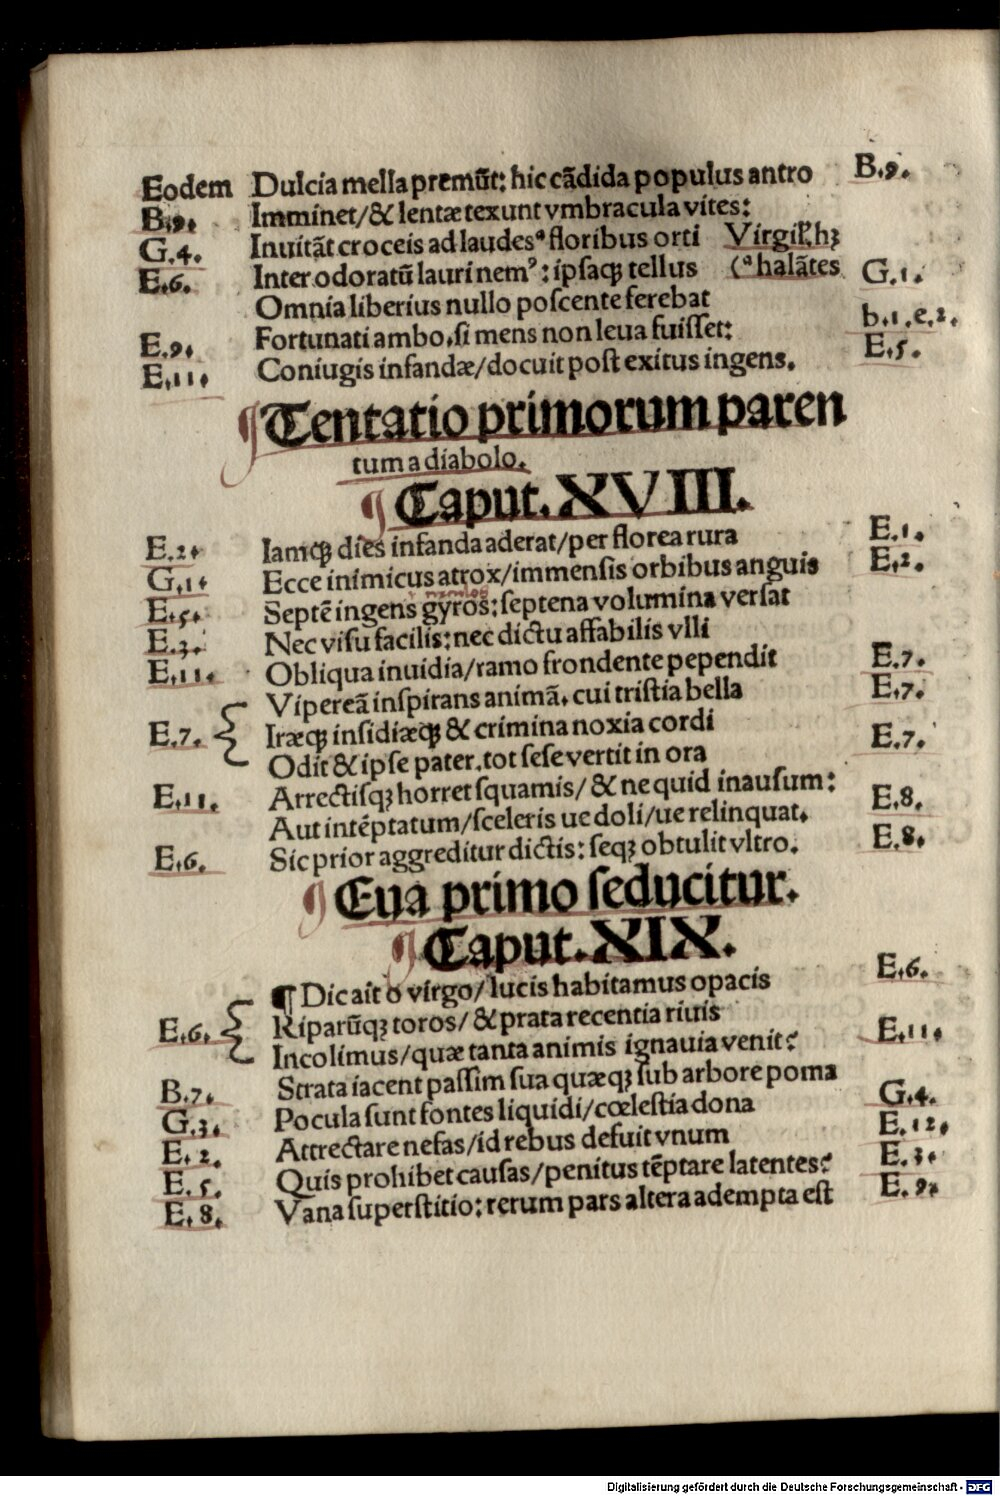 Eodem Dulcia mella premūt: hic cādida populus antro B.9.
B.9. Imminet/& lentæ texunt vmbracula vites:
G.4. Inuitāt croceis ad laudesª floribus orti Virgiľ.hꝫ
E.6. Inter odoratū lauri nemꝰ: ipsaqꝫ tellus (ª halātes G.1.
Omnia liberius nullo poscente ferebat b.1.e.2.
E.9. Fortunati ambo, si mens non leua fuisset: E.5.
E.11. Coniugis infandæ/docuit post exitus ingens.
¶Tentatio primorum paren
tum a diabolo.
¶Caput. XVIII.
E.2. Iamqꝫ dies infanda aderat/per florea rura E.1.
G.1. Ecce inimicus atrox/immensis orbibus anguis E.2.
E.5. Septē ingens gyros: septena volumina versat
E.3. Nec visu facilis: nec dictu affabilis vlli
E.11. Obliqua inuidia/ramo frondente pependit E.7.
Vipereā inspirans animā. cui tristia bella E.7.
E.7. Iræqꝫ insidiæqꝫ & crimina noxia cordi E.7.
Odit & ipse pater. tot sese vertit in ora
E.11. Arrectisqꝫ horret squamis/& ne quid inausum: E.8.
Aut intēptatum/sceleris ue doli/ue relinquat.
E.6. Sic prior aggreditur dictis: seqꝫ obtulit vltro. E.8.
¶Eua primo seducitur.
¶Caput. XIX.
¶Dic ait o virgo/lucis habitamus opacis E.6.
E.6. Riparūqꝫ toros/& prata recentia riuis
Incolimus/quæ tanta animis ignauia venit? E.11.
B.7. Strata iacent passim sua quæqꝫ sub arbore poma
G.3. Pocula sunt fontes liquidi/cœlestia dona G.4.
E.2. Attrectare nefas/id rebus defuit vnum E.12.
E.5. Quis prohibet causas/penitus tēptare latentes? E.3.
E.8. Vana superstitio: rerum pars altera adempta est E.9.
Digitalisierung gefördert durch die Deutsche Forschungsgemeinschaft - DFG